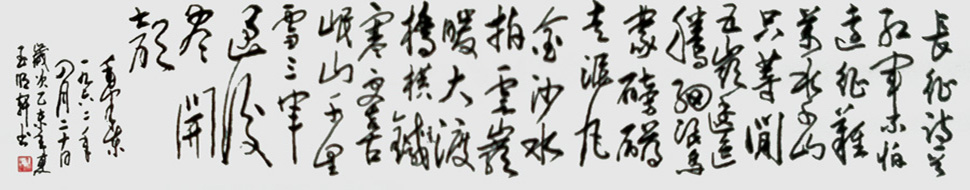 長征詩一首
紅軍不怕
遠征難
萬水千山
只等閒
五嶺逶迤
騰細浪烏
蒙磅礴
走泥丸
金沙水
拍雲崖
暖大渡
橋橫鐵
寒更喜
岷山千里
雪三軍
過後
盡開
顏
毛澤東
一九六二年
四月二十日
歲次乙亥年夏
書